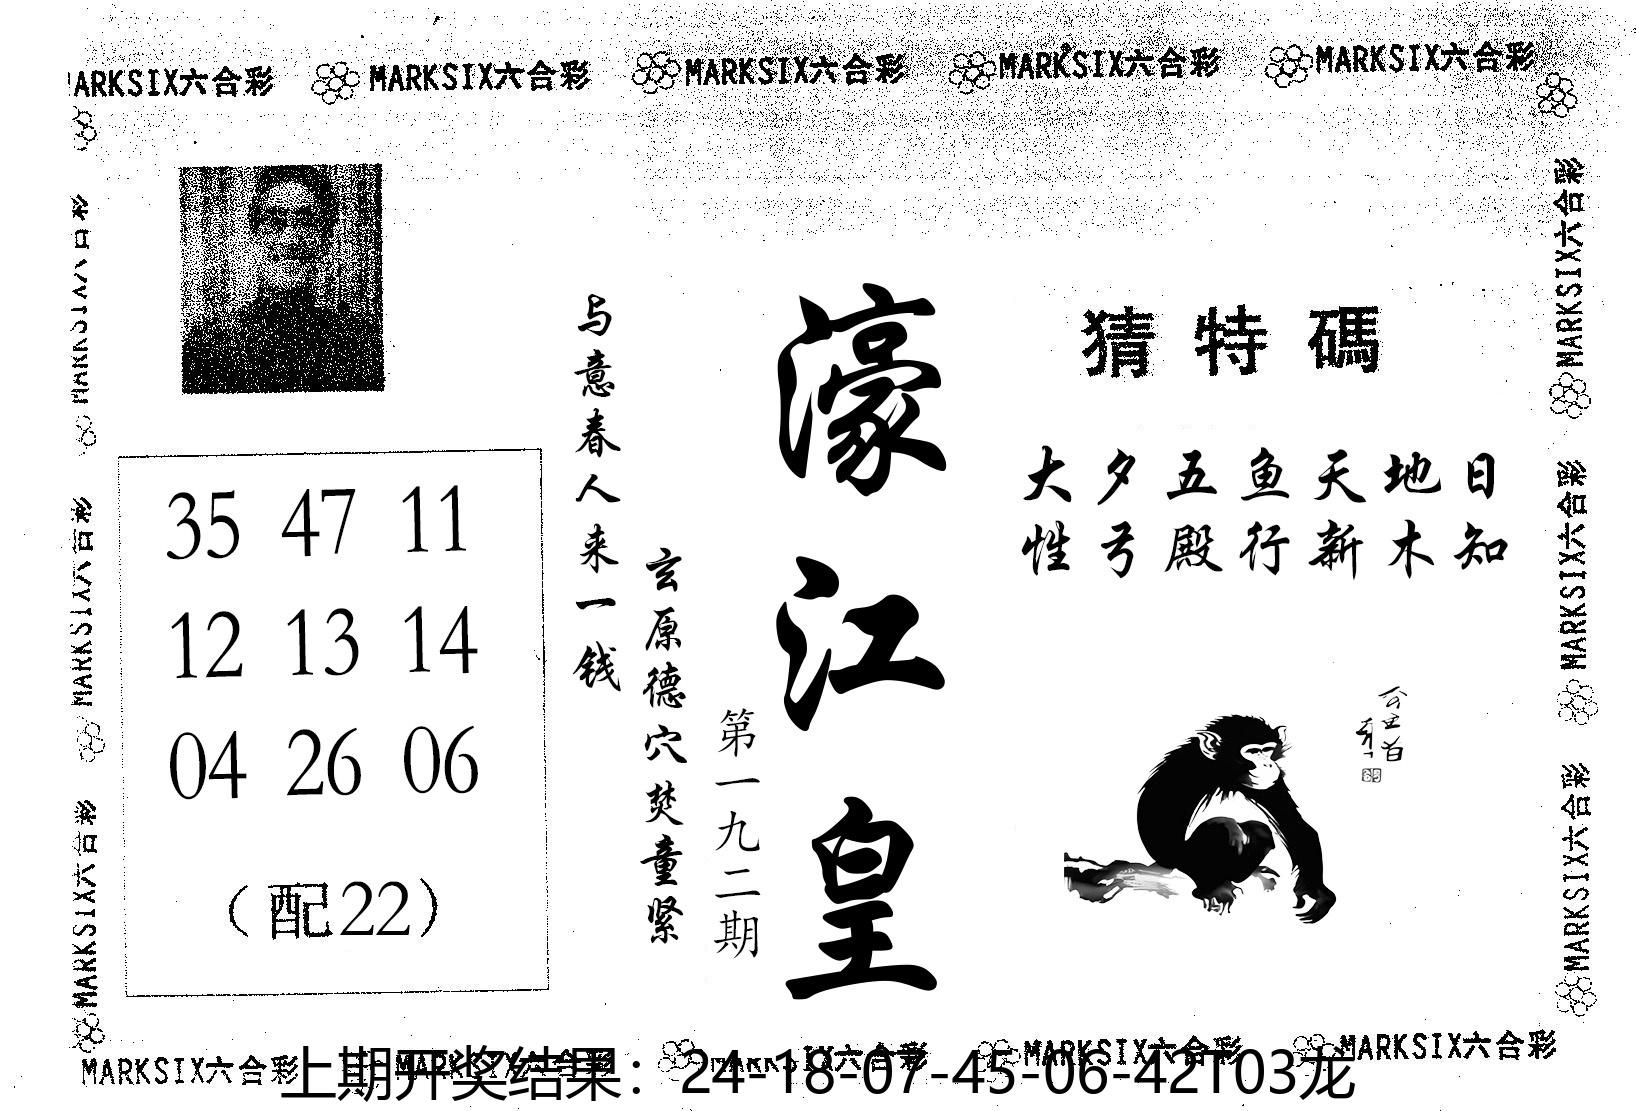 MARKSIX六合彩 MARKSIX六合彩 MARKSIX六合彩 MARKSIX六合彩 MARKSIX六合彩
MARKSIX六合彩
MARKSIX六合彩
MARKSIX六合彩
35 47 11
12 13 14
04 26 06
(配22)
与意春人来一钱
玄原德穴焚童紧
第一九二期
濠江皇
猜特碼
大夕五鱼天地日
性弓殿行新木知
MARKSIX六合彩
MARKSIX六合彩
MARKSIX六合彩
MARKSIX六合彩 MARKSIX六合彩 MARKSIX六合彩 MARKSIX六合彩 MARKSIX六合彩
上期开奖结果：24-18-07-45-06-42T03龙